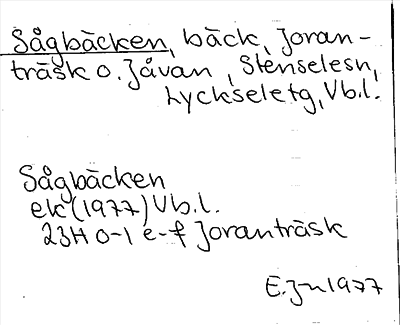 Sågbäcken, bäck, Joran-
träsk o. Jåvan, Stenselesn,
Lyckseletg, Vb.l.
Sågbäcken
ek (1977) Vb.l.
23H 0-1 e-f Joranträsk
E.Jn 1977